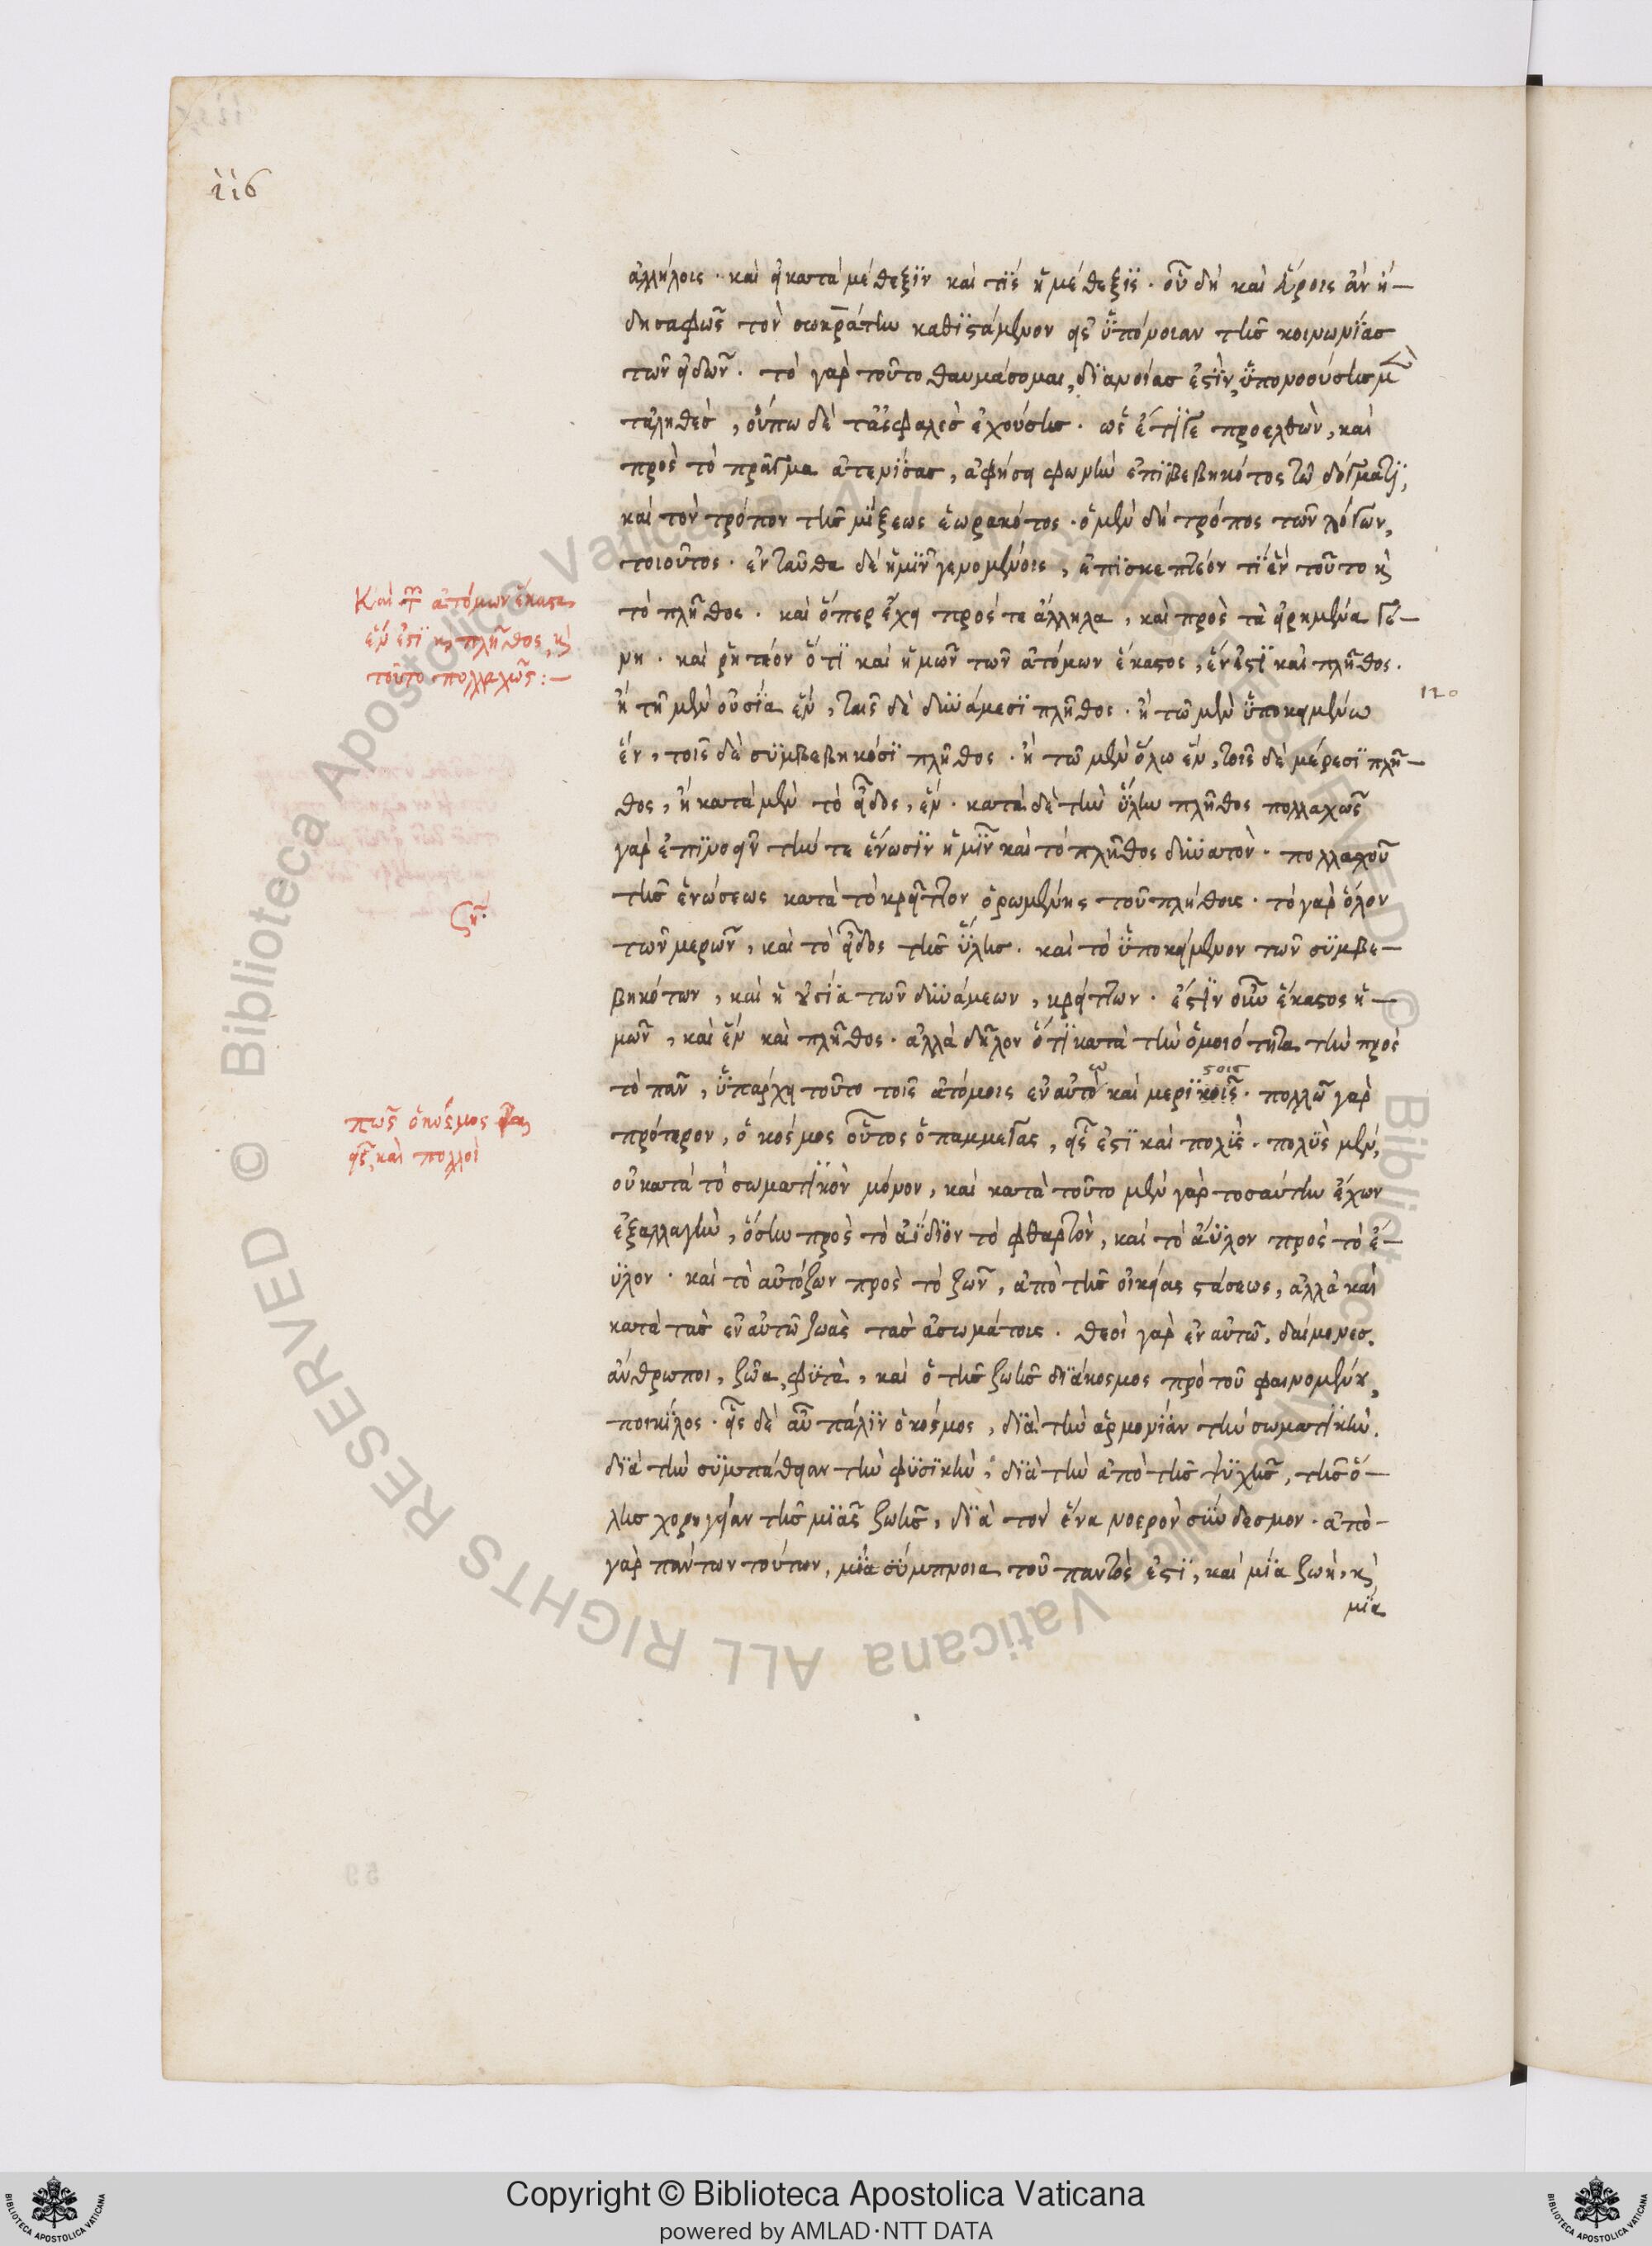 116
ἀλλήλοις · καὶ εἰ κατὰ μέθεξιν καὶ τίς ἡ μέθεξις · οὗ δὴ καὶ εὕροις ἂν ἤ–
δη σαφῶς τὸν σωκράτην καθιστάμενον εἰς ὑπόνοιαν τῆς κοινωνίας
τῶν εἰδῶν · τὸ γὰρ τοῦτο θαυμάσομαι, διανοίας ἐστὶν, ὑπονοούσης μὲν
τἀληθὲς, οὔπω δὲ τἀσφαλὲς ἐχούσης · ὡς ἔτι γε προελθὼν, καὶ
πρὸς τὸ πρᾶγμα ἀτενίσας, ἀφήσει φωνὴν ἐπιβεβηκότος τῷ δόγματι,
καὶ τὸν τρόπον τῆς μίξεως ἑωρακότος · ὁ μὲν δὴ τρόπος τῶν λόγων,
τοιοῦτος · ἐνταῦθα δὲ ἡμῖν γενομένοις, ἐπισκεπτέον τί ἓν τοῦτο καὶ
τὸ πλῆθος · καὶ ὅπερ ἔχει πρός τε ἄλληλα, καὶ πρὸς τὰ εἰρημένα γέ–
νη · καὶ ῥητέον ὅτι καὶ ἡμῶν τῶν ἀτόμων ἕκαστος, ἕν ἐστι καὶ πλῆθος ·
ἢ τῇ μὲν οὐσία ἓν, ταῖς δὲ δυνάμεσι πλῆθος · ἢ τῷ μὲν ὑποκειμένω
ἓν, τοῖς δὲ συμβεβηκόσι πλῆθος · ἢ τῷ μὲν ὅλω ἓν, τοῖς δὲ μέρεσι πλῆ–
θος, ἢ κατὰ μὲν τὸ εἶδος, ἓν · κατὰ δὲ τὴν ὕλην πλῆθος πολλαχῶς
γὰρ ἐπινοεῖν τήν τε ἕνωσιν ἡμῖν καὶ τὸ πλῆθος δυνατὸν · πολλαχοῦ
τῆς ἑνώσεως κατὰ τὸ κρεῖττον ὁρωμένης τοῦ πλήθους · τὸ γὰρ ὅλον
τῶν μερῶν, καὶ τὸ εἶδος τῆς ὕλης · καὶ τὸ ὑποκείμενον τῶν συμβε–
βηκότων, καὶ ἡ οὐσία τῶν δυνάμεων, κρείττων · ἔστιν οὖν ἕκαστος ἡ–
μῶν, καὶ ἓν καὶ πλῆθος · ἀλλὰ δῆλον ὅτι κατὰ τὴν ὁμοιότητα τὴν πρὸς
τὸ πᾶν, ὑπάρχει τοῦτο τοῖς ἀτόμοις ἐν αὐτῷ καὶ μερικοῖς · πολλῷ γὰρ
πρότερον, ὁ κόσμος οὗτος ὁ παμμέγας, εἷς ἐστι καὶ πολὺς · πολὺς μὲν,
οὐ κατὰ τὸ σωματικὸν μόνον, καὶ κατὰ τοῦτο μὲν γὰρ τοσαύτην ἔχων
ἐξαλλαγὴν, ὅσην πρὸς τὸ ἀΐδιον τὸ φθαρτὸν, καὶ τὸ ἄϋλον πρὸς τὸ ἔ–
υλον · καὶ τὸ αὐτόζων πρὸς τὸ ζῶν, ἀπὸ τῆς οἰκείας στάσεως, ἀλλὰ καὶ
κατὰ τὰς ἐν αὐτῷ ζωὰς τὰς ἀσωμάτους · θεοὶ γὰρ ἐν αὐτῷ, δαίμονες,
ἄνθρωποι, ζῶα, φυτὰ, καὶ ὁ τῆς ζωῆς διάκοσμος πρὸ τοῦ φαινομένου,
ποικίλος · εἷς δὲ αὖ πάλιν ὁ κόσμος, διὰ τὴν ἁρμονίαν τὴν σωματικὴν.
διὰ τὴν συμπάθειαν τὴν φυσικὴν, διὰ τὴν ἀπὸ τῆς ψυχῆς, τῆς ὅ–
λης χορηγίαν τῆς μιᾶς ζωῆς, διὰ τὸν ἕνα νοερὸν σύνδεσμον · ἀπὸ
γὰρ πάντων τούτων, μία σύμπνοια τοῦ παντός ἐστι, καὶ μία ζωὴ, καὶ
μία
Καὶ τῶν ἀτόμων ἕκαστον
ἕν ἐστι καὶ πλῆθος, καὶ
τοῦτο πολλαχῶς : –
ζη
120
πῶς ὁ κόσμος
εἷς, καὶ πολλοὶ
Copyright © Biblioteca Apostolica Vaticana
powered by AMLAD·NTT DATA
© Biblioteca Apostolica Vaticana ALL RIGHTS RESERVED